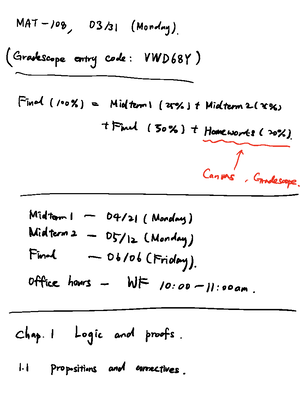 MAT-108, 03/31 (Monday).
(Gradescope entry code: VWD68Y)
Final (100%) = Midterm 1 (25%) + Midterm 2 (25%)
+ Final (30%) + Homeworks (20%).
Canvas, Gradescope.
Midterm 1 — 04/21 (Monday)
Midterm 2 — 05/12 (Monday)
Final — 06/06 (Friday).
Office hours — WF 10:00-11:00am.
Chap. 1 Logic and proofs.
1.1 Propositions and connectives.